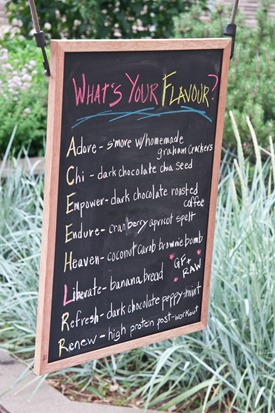 WHAT'S YOUR FLAVOUR?
Adore - s'more w/homemade
graham crackers
Chi - dark chocolate chia seed
Empower - dark chocolate roasted
coffee
Endure - cranberry apricot spelt
Heaven - coconut carob brownie bomb
GF +
RAW
Liberate - banana bread
Refresh - dark chocolate peppy-mint
Renew - high protein post-workout